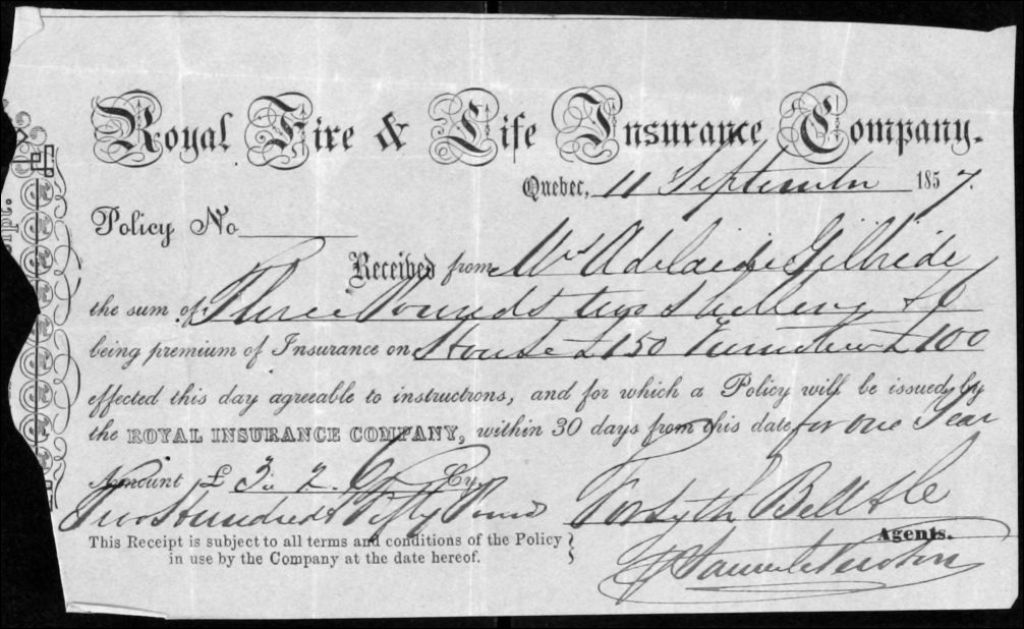 Royal Fire & Life Insurance Company.
Quebec, 11 September 1857.
Policy No
Received from Mrs Adelaide Gilbride
the sum of Three Pounds two Shilling & 6
being premium of Insurance on House £150 Furniture £100
effected this day agreeable to instructions, and for which a Policy will be issued by
the ROYAL INSURANCE COMPANY, within 30 days from this date for one Year
Amount £ 3. 2. 6 Cy.
Two Hundred & Fifty Pound Forsyth Bell & Co
Agents.
This Receipt is subject to all terms and conditions of the Policy
in use by the Company at the date hereof.
ipt.